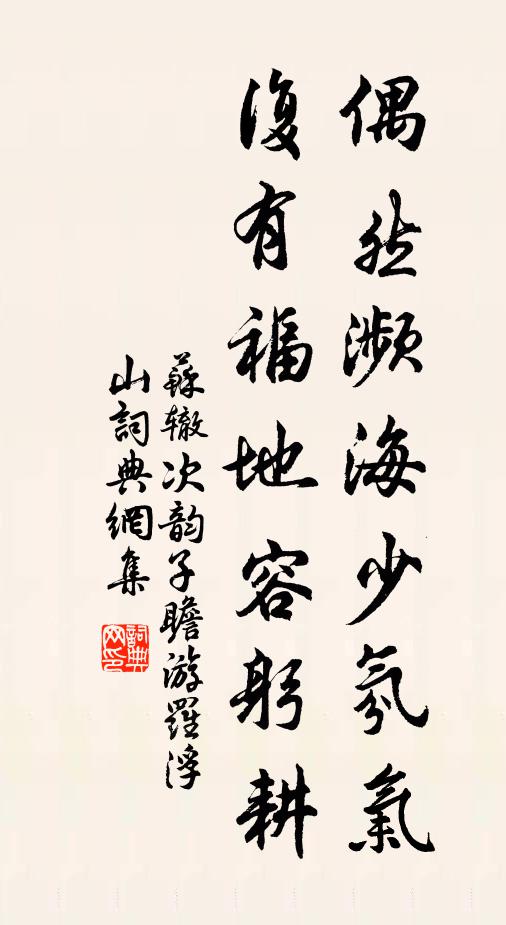 偶然濒海少氛氣
復有福地容躬耕
蘇辙次韵子瞻游羅浮
山詞典網集
詞典
网印